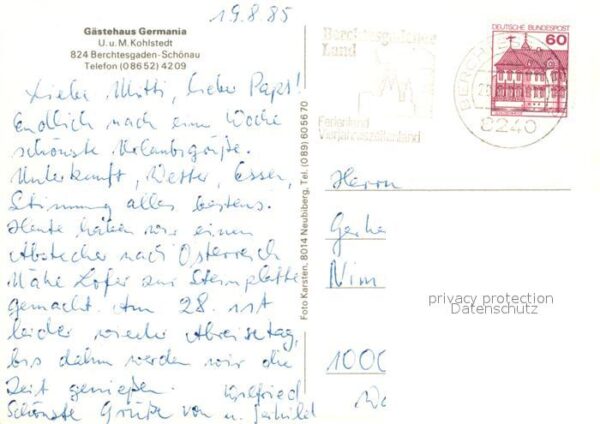 19.8.85
Gästehaus Germania
U. u. M. Kohlstedt
824 Berchtesgaden-Schönau
Telefon (08652) 4209
Liebe Mutti, lieber Paps!
Endlich nach eine Woche
schönste Urlaubsgrüße.
Unterkunft, Wetter, Essen,
Stimmung alles bestens.
Heute haben wir einen
Abstecher nach Österreich
Nähe Lofer zur Steinplatte
gemacht. Am 28. ist
leider wieder Abreisetag,
bis dahin werden wir die
Zeit genießen. Wilfried
Schönste Grüße von u.
Foto Karsten, 8014 Neubiberg, Tel. (089) 605670
Berchtesgadener
Land
Ferienland
Vierjahreszeitenland
DEUTSCHE BUNDESPOST
60
8240
Herrn
Gerha
Nim
privacy protection
Datenschutz
1000